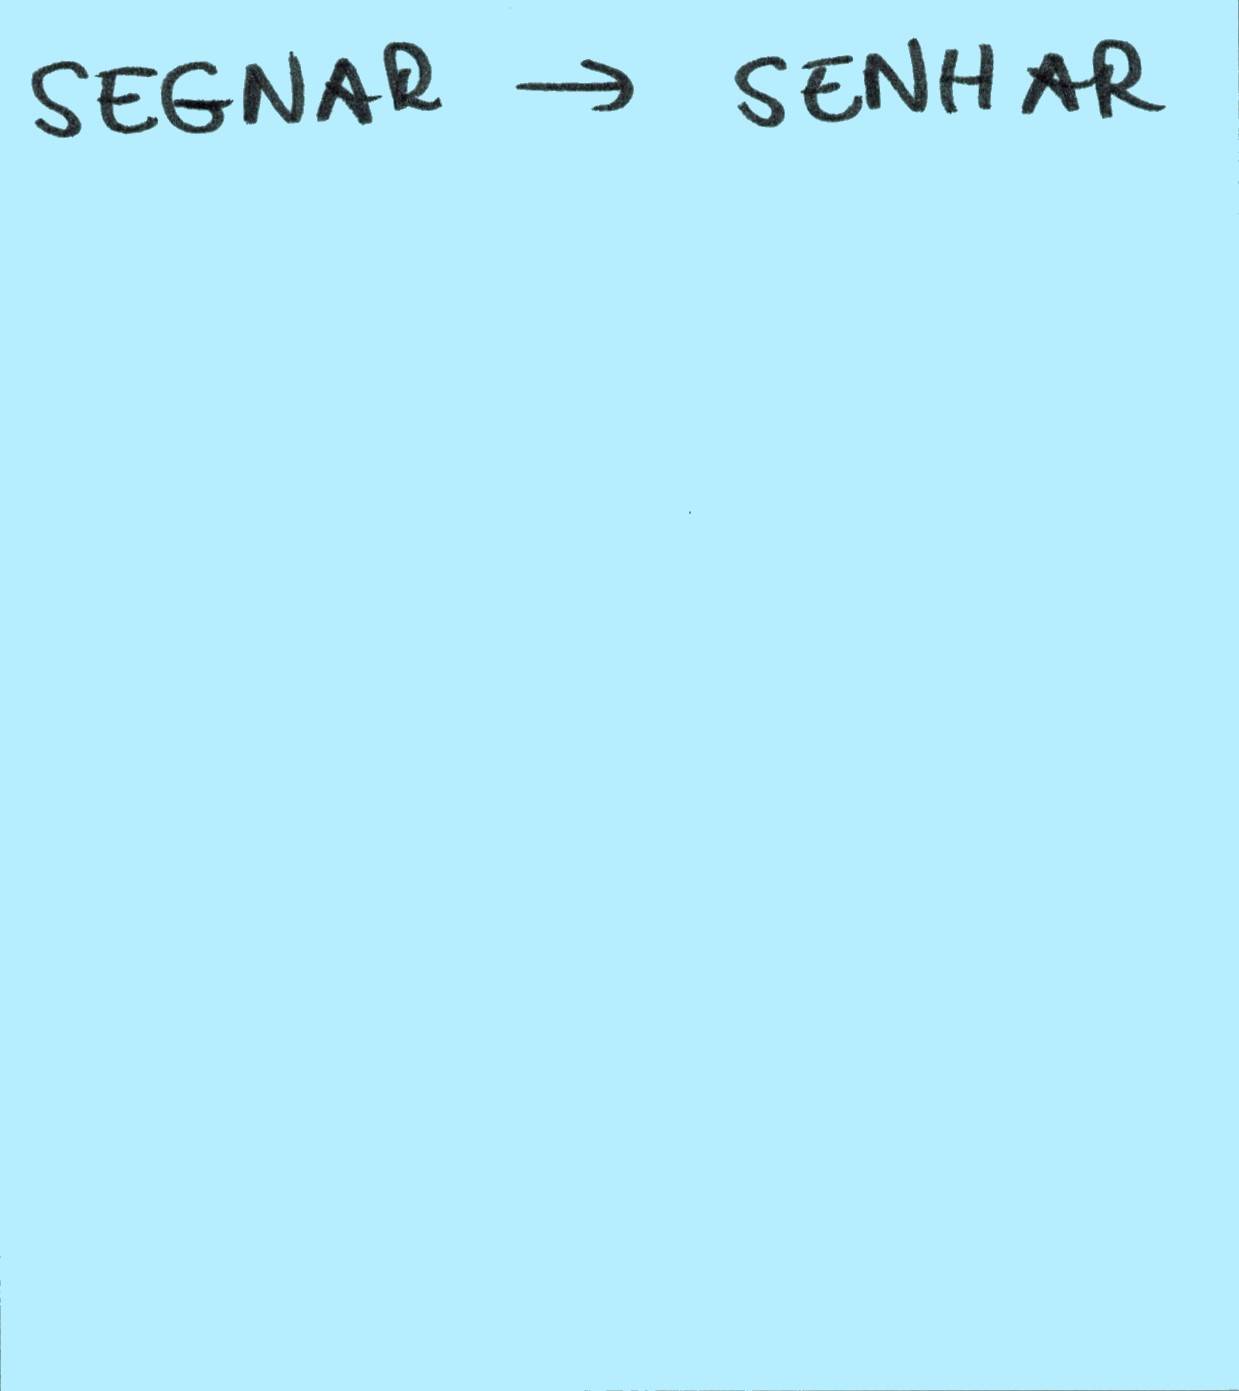 SEGNAR → SENHAR